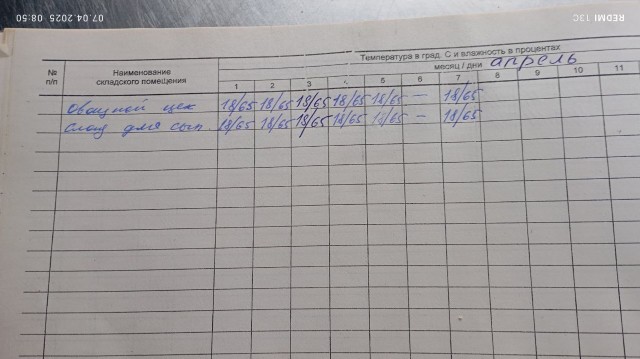 REDMI 13C
07.04.2025 08:50
Температура в град. С и влажность в процентах
№ п/п
Наименование складского помещения
месяц / дни апрель
1 2 3 4 5 6 7 8 9 10 11
Овощной цех 18/65 18/65 18/65 18/65 18/65 — 18/65
Склад для сып. 18/65 18/65 18/65 18/65 18/65 — 18/65